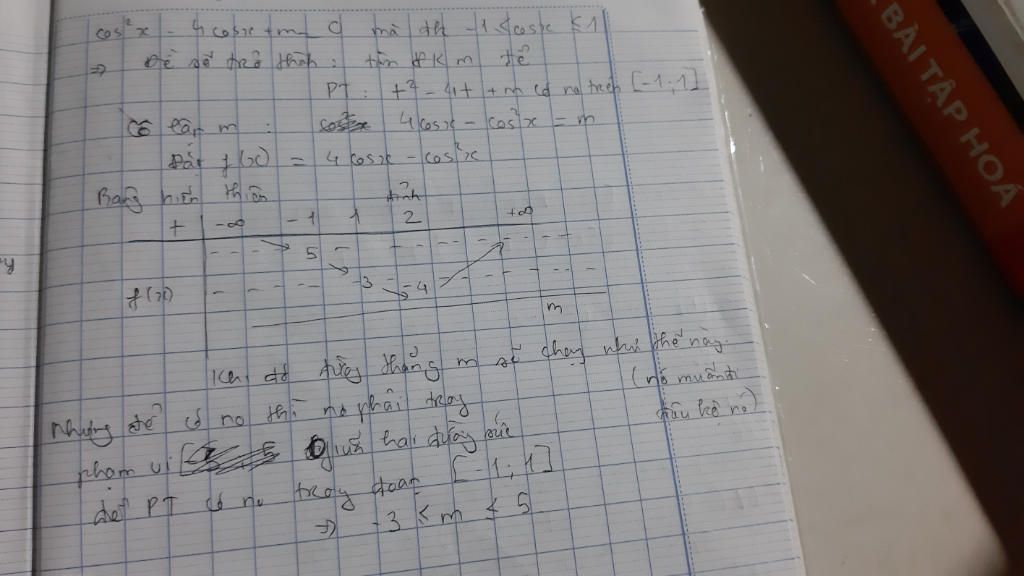 cos²x - 4cosx + m = 0 mà đk -1 ≤ cosx ≤ 1
=> Đề sẽ trở thành : tìm ĐK m để
PT : t² - 4t + m có no trên [-1;1]
Cô lập m : 4cosx - cos²x = m
Đặt f(x) = 4cosx - cos²x
Bảng biến thiên
đỉnh
t -∞ -1 1 2 +∞
5
-3 -4
f(x)
m
Khi đó đường thẳng m sẽ chạy như thế này.
(nó muốn đi
đâu kệ nó)
Nhưng để có no thì nó phải trong
phạm vi giữa hai đường
để PT có no trong đoạn [-1;1]
=> -3 ≤ m ≤ 5
BÀI TẬP HOÁ